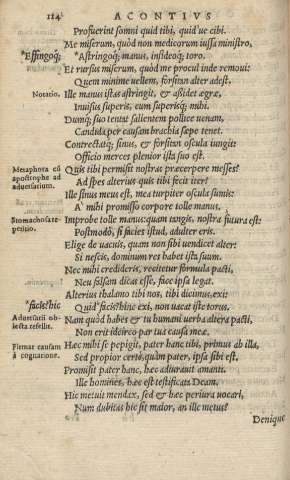 114 ACONTIVS
Profuerint somni quid tibi, quid'ue cibi.
Me miserum, quòd non medicorum iussa ministro,
*Effingoq; *Astringoq; manus, insideoq; toro.
Et rursus miserum, quòd me procul inde remoto:
Quem minime vellem, forsitan alter adest.
Notatio. Ille manus istas astringit, & aßidet ægræ,
Inuisus superis, cum superisq; mihi.
Dumq; suo tentat salientem pollice venam,
Candida per causam brachia sæpe tenet.
Contrectatq; sinus, & forsitan oscula iungit:
Officio merces plenior ista suo est.
Metaphora cũ apostrophe ad aduersarium. Quis tibi permisit nostras præcerpere messes?
Ad spes alterius quis tibi fecit iter?
Ille sinus meus est, mea turpiter oscula sumis:
A' mihi promisso corpore tolle manus.
Stomachosa repetitio. Improbe tolle manus: quam tangis, nostra futura est:
Postmodò, si facies istud, adulter eris.
Elige de vacuis, quam non sibi uendicet alter:
Si nescis, dominum res habet ista suum.
Nec mihi credideris, recitetur formula pacti,
Neu falsam dicas esse, fac ipsa legat.
Alterius thalamo tibi nos, tibi dicimus, exi:
*facis? hic Quid *facis? hinc exi, non uacat iste torus.
Aduersarii obiecta refellit. Nam quòd habes & tu humani uerba altera pacti,
Non erit idcirco par tua causa meæ.
Firmat causam à cognatione. Hæc mihi se pepigit, pater hanc tibi, primus ab illa,
Sed propior certè, quàm pater, ipsa sibi est.
Promisit pater hanc, hæc adiurauit amanti.
Ille homines, hæc est testificata Deam.
Hic metuit mendax, sed & hæc periura uocari,
Num dubitas hic sit maior, an ille metus?
Denique